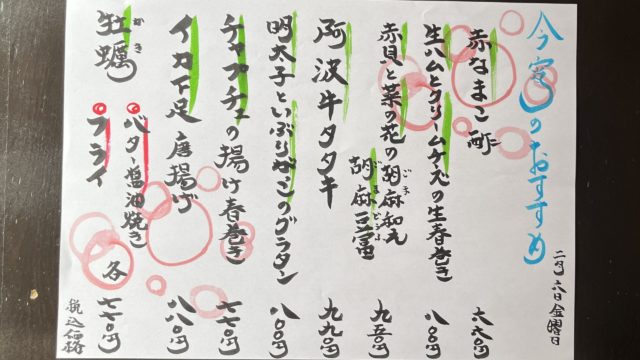 今宵のおすすめ
二月六日金曜日
赤なまこ酢 六六〇円
生ハムとクリームチーズの生春巻き 八八〇円
赤貝と菜の花の胡麻和え
ごま
胡麻豆富 九五〇円
ごまどうふ
阿波牛タタキ 九九〇円
明太子といぶりがっこのグラタン 八八〇円
チャプチェの揚げ春巻き 七七〇円
イカ下足唐揚げ 八八〇円
牡蠣
かき
バター醤油焼き
フライ 各七七〇円
税込価格